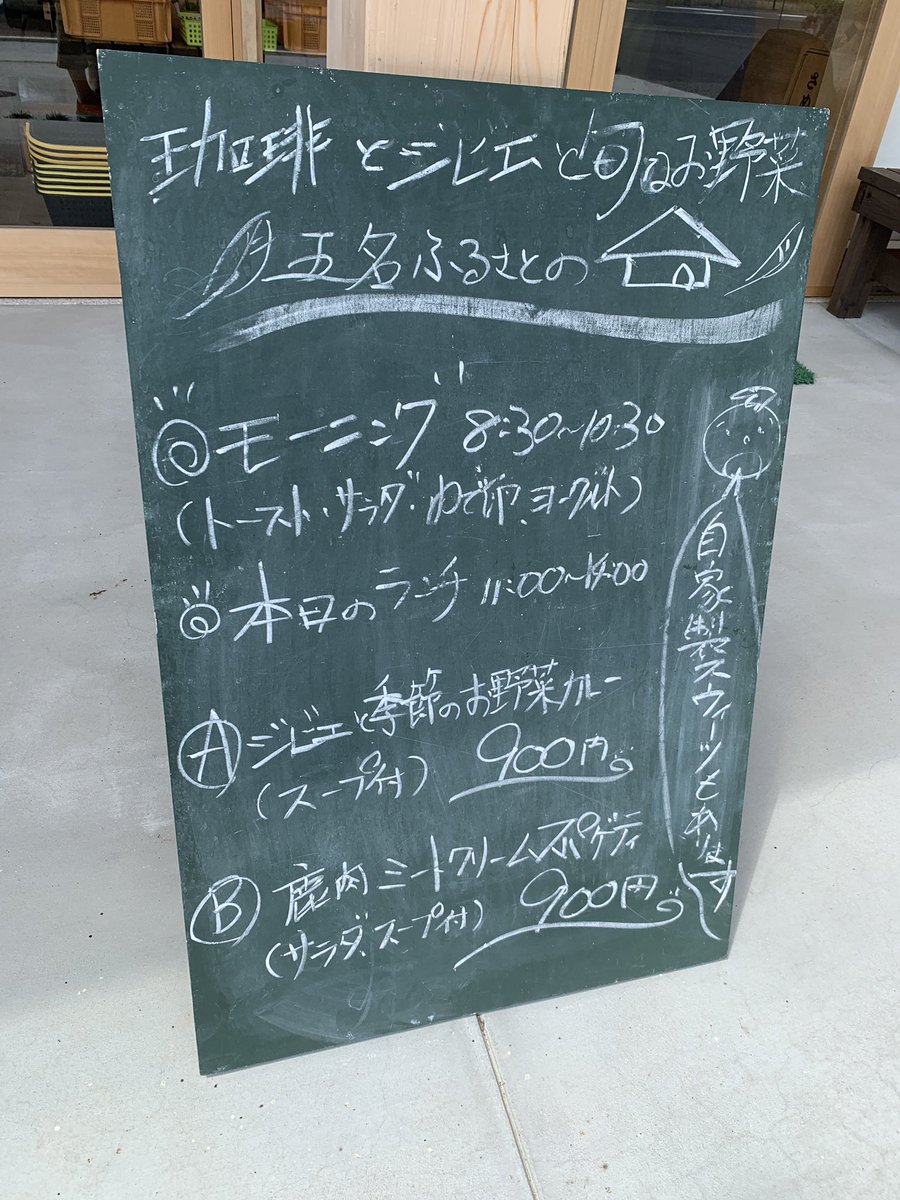 珈琲とジビエと旬なお野菜
玉名ふるさとの
◎モーニング 8:30～10:30
(トースト・サラダ・ゆで卵、ヨーグルト)
◎本日のランチ 11:00～14:00
Ⓐジビエと季節のお野菜カレー
(スープ付) 900円
Ⓑ鹿肉ミートクリームスパゲティ
(サラダ、スープ付) 900円
自家製スウィーツもあります